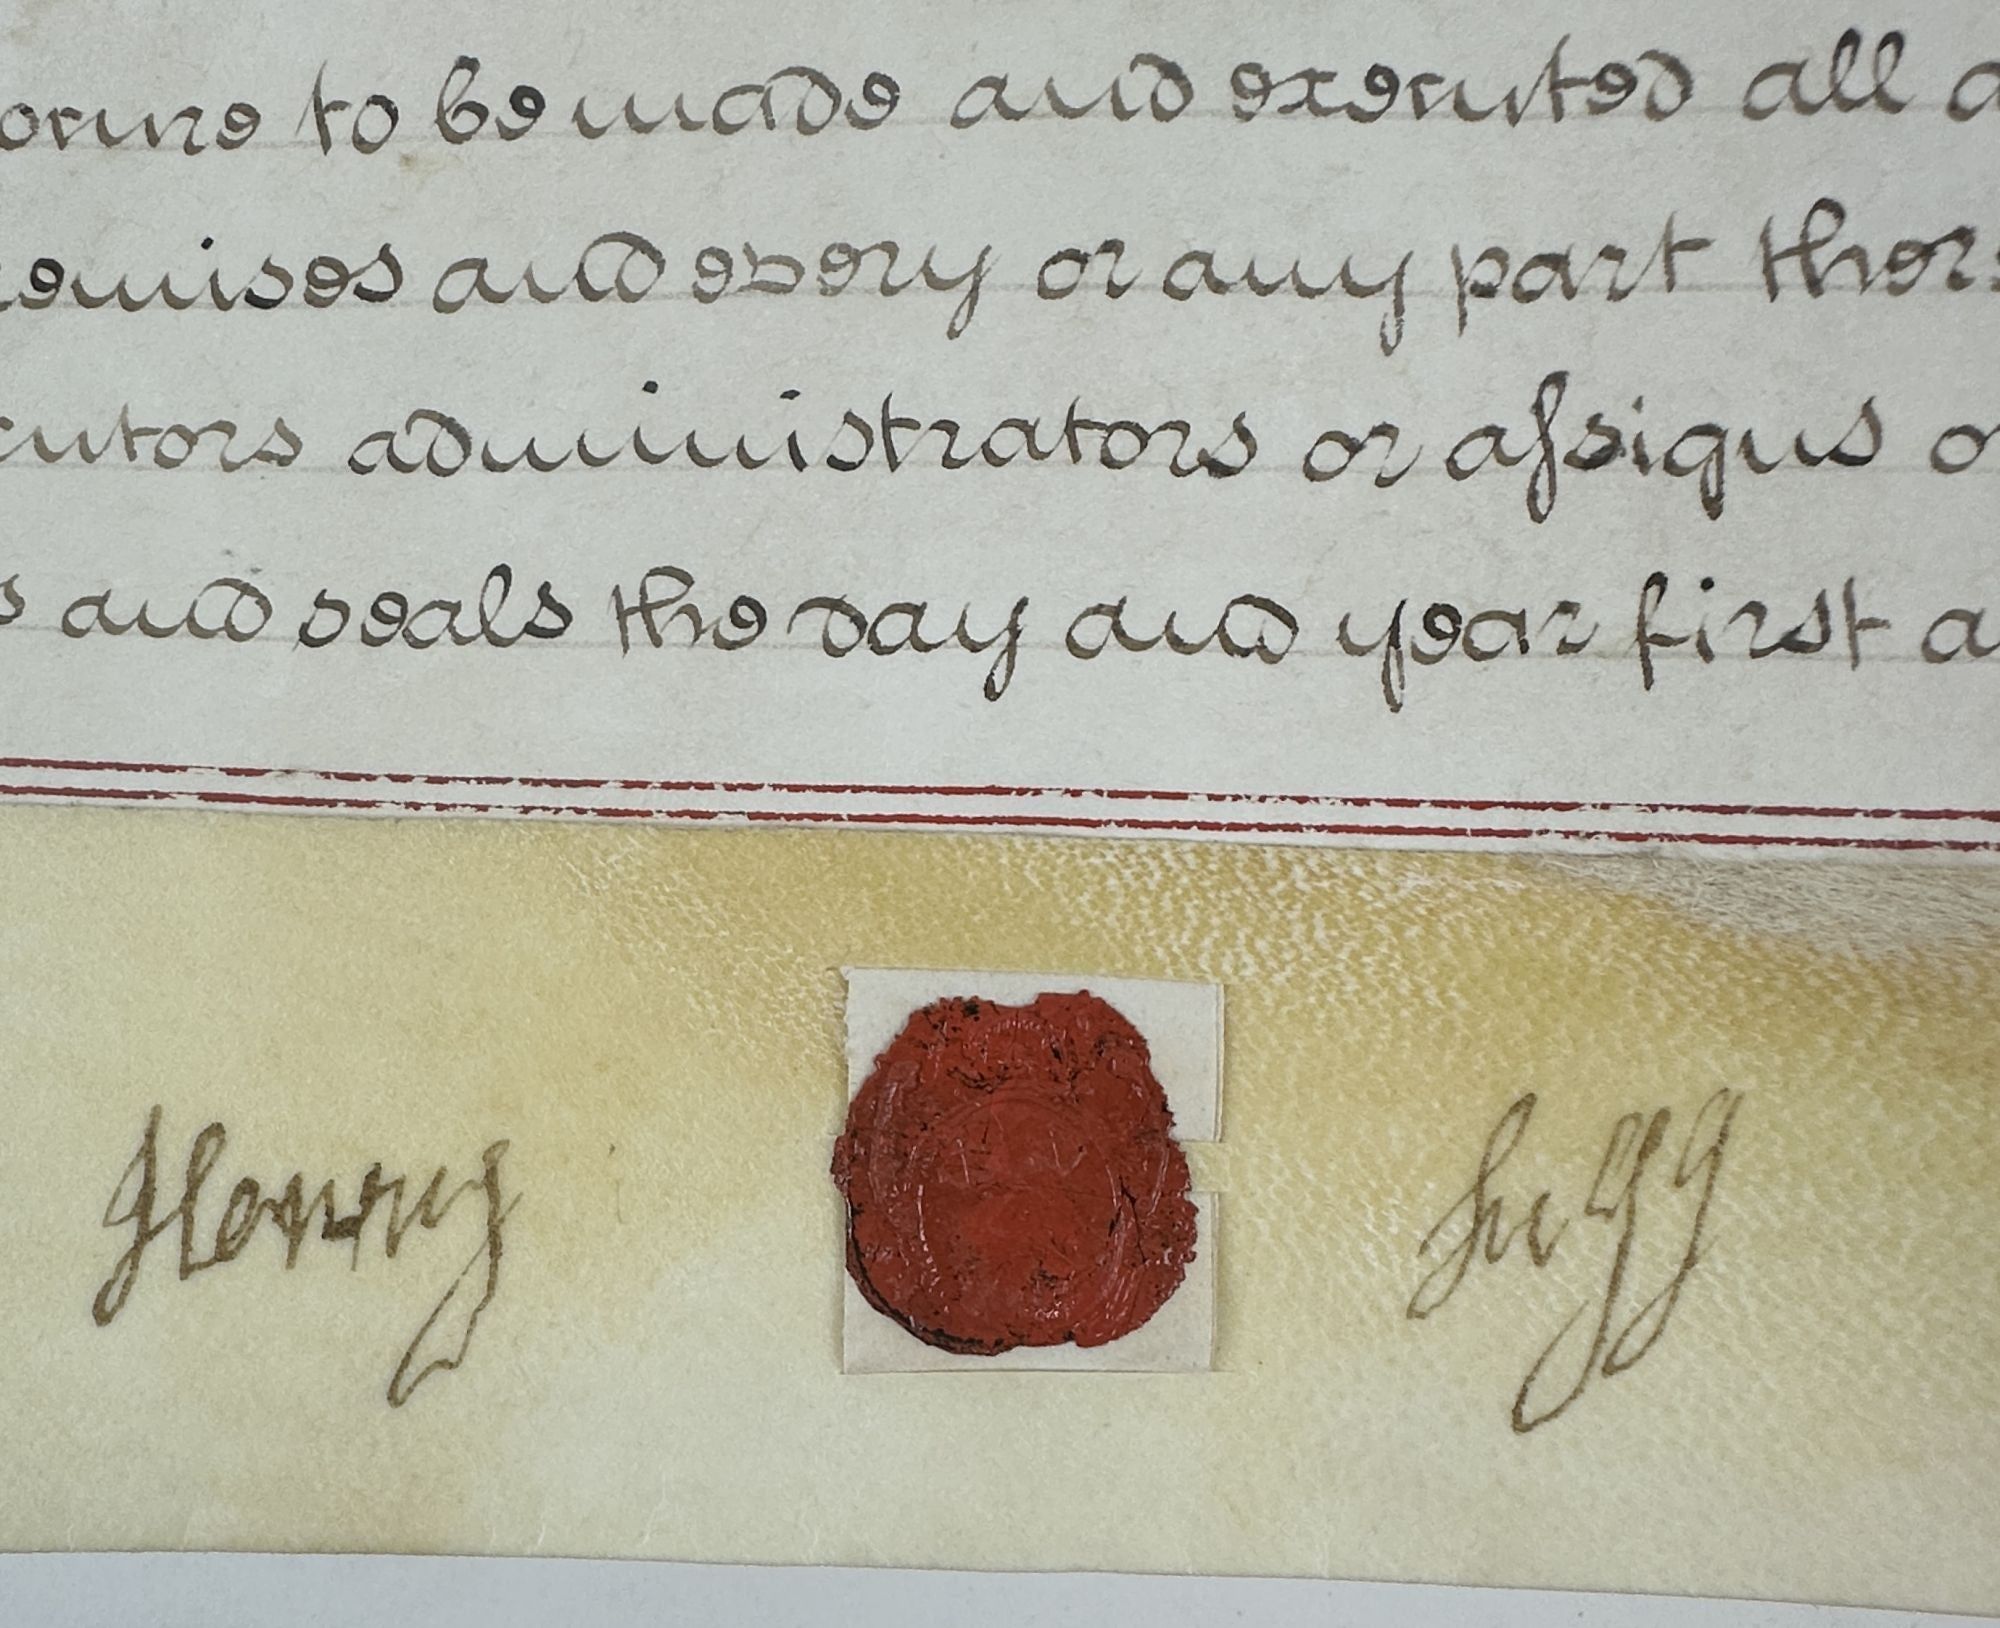 to be made and executed all a
remises and every or any part there
cutors administrators or assigns or
s and seals the day and year first a
Henry Sugg